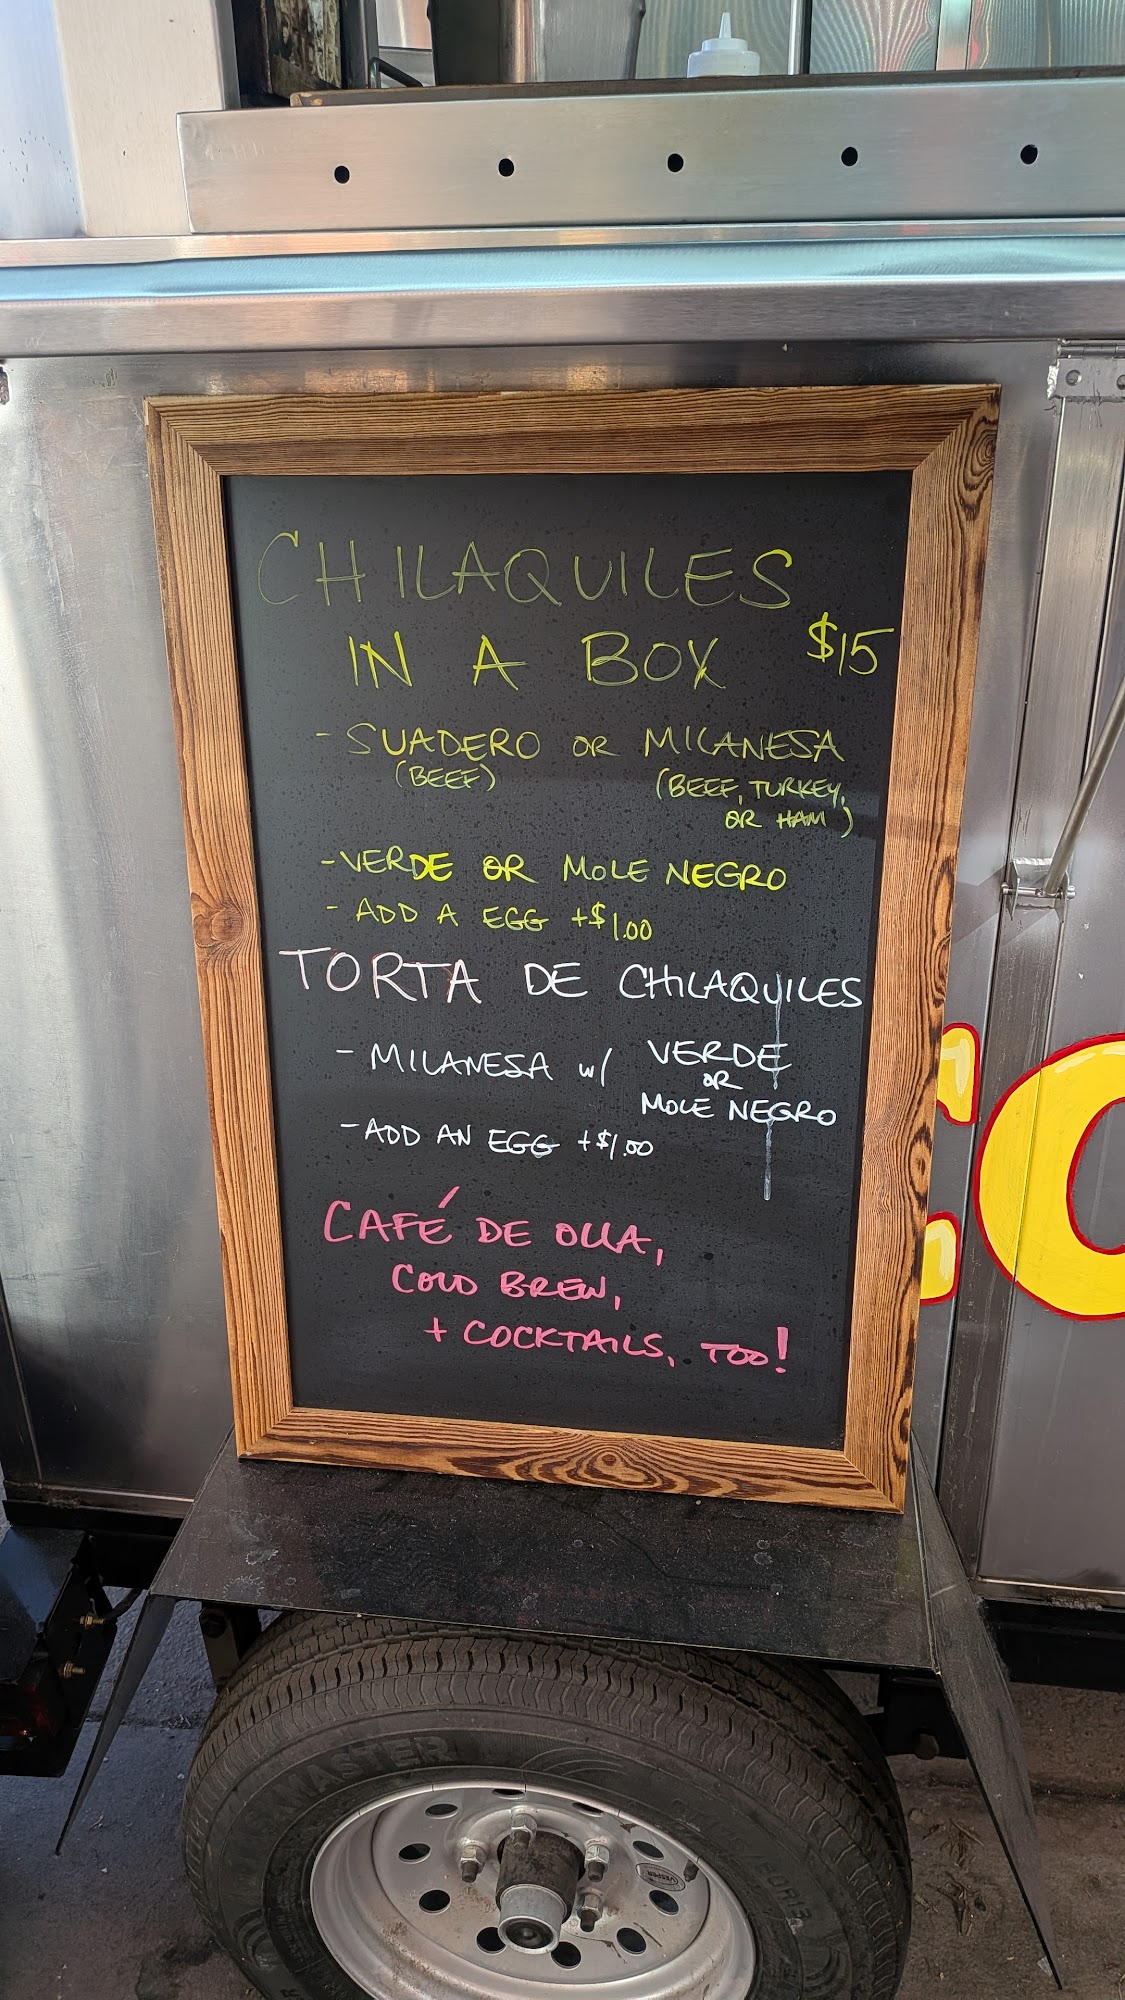 CHILAQUILES
IN A BOX $15
- SUADERO OR MILANESA
(BEEF) (BEEF, TURKEY,
OR HAM)
- VERDE OR MOLE NEGRO
- ADD A EGG +$1.00
TORTA DE CHILAQUILES
- MILANESA w/ VERDE
OR
MOLE NEGRO
- ADD AN EGG +$1.00
CAFÉ DE OLLA,
COLD BREW,
+ COCKTAILS, TOO!
CO
VESPER